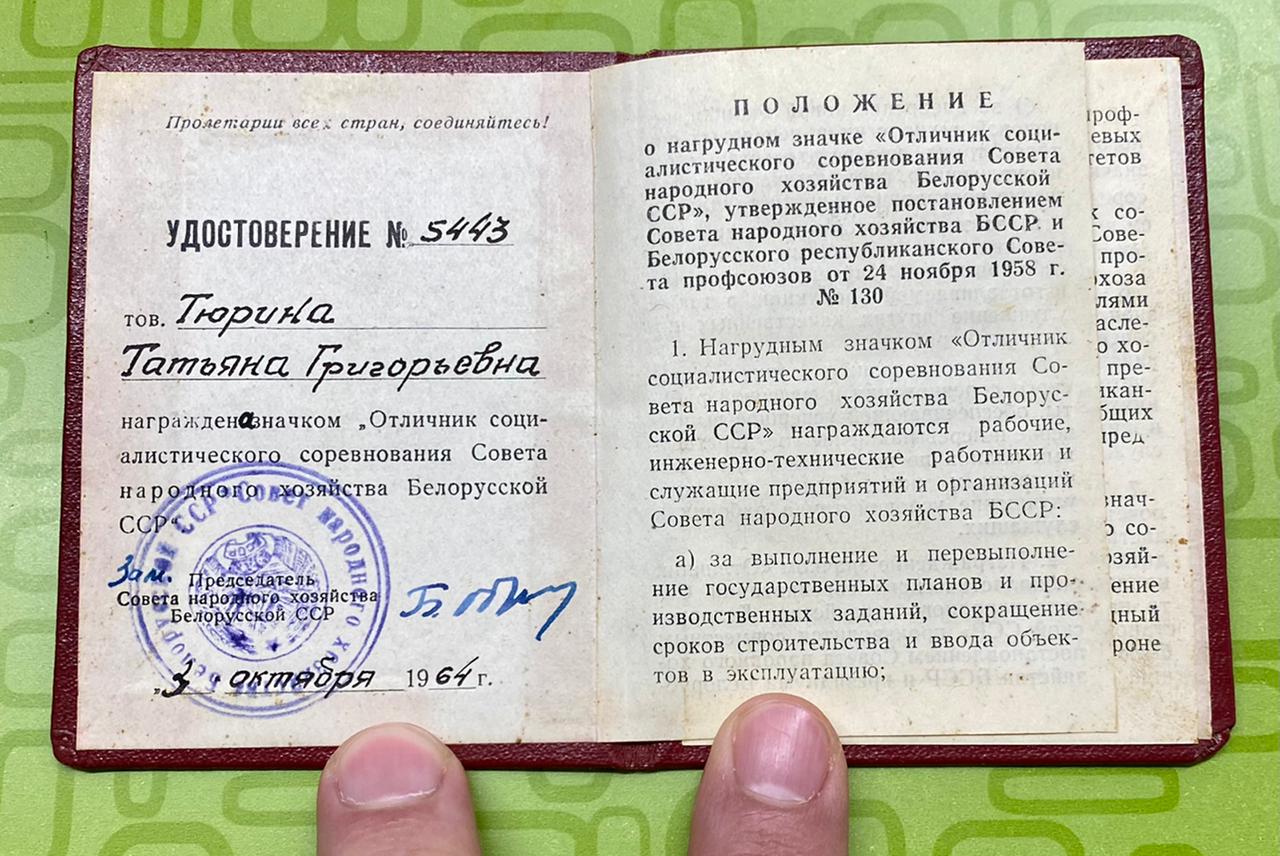 Пролетарии всех стран, соединяйтесь!
УДОСТОВЕРЕНИЕ № 5443
тов. Тюрина
Татьяна Григорьевна
награждена значком „Отличник соци-
алистического соревнования Совета
народного хозяйства Белорусской
ССР“
Зам. Председатель
Совета народного хозяйства
Белорусской ССР
„3“ октября 1964 г.
Совет народного хозяйства Белорусской ССР
ПОЛОЖЕНИЕ
о нагрудном значке «Отличник соци-
алистического соревнования Совета
народного хозяйства Белорусской
ССР», утвержденное постановлением
Совета народного хозяйства БССР и
Белорусского республиканского Сове-
та профсоюзов от 24 ноября 1958 г.
№ 130
1. Нагрудным значком «Отличник
социалистического соревнования Со-
вета народного хозяйства Белорус-
ской ССР» награждаются рабочие,
инженерно-технические работники и
служащие предприятий и организаций
Совета народного хозяйства БССР:
а) за выполнение и перевыполне-
ние государственных планов и про-
изводственных заданий, сокращение
сроков строительства и ввода объек-
тов в эксплуатацию;